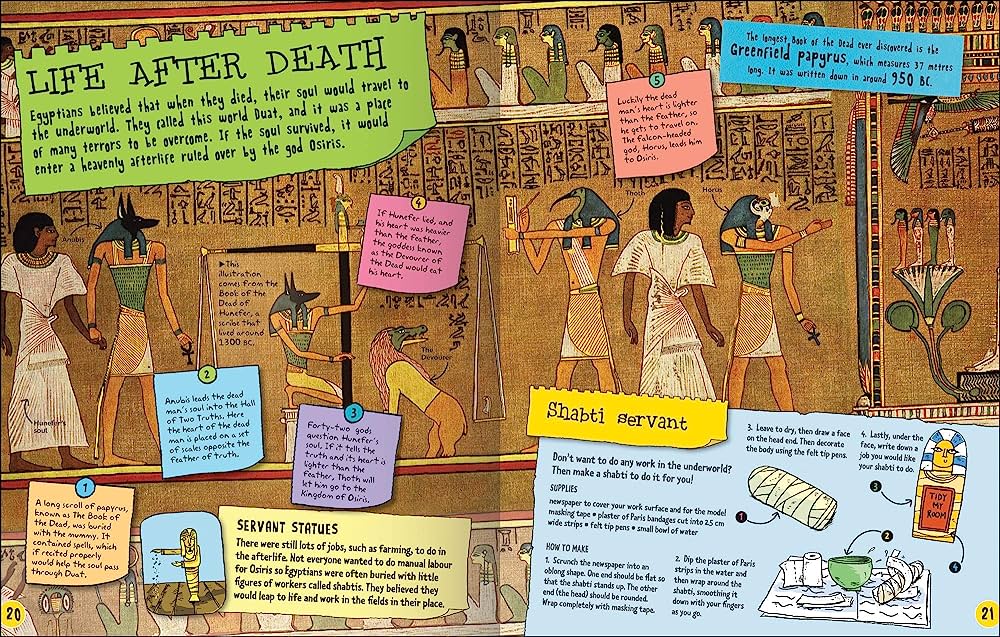 LIFE AFTER DEATH
Egyptians believed that when they died, their soul would travel to
the underworld. They called this world Duat, and it was a place
of many terrors to be overcome. If the soul survived, it would
enter a heavenly afterlife ruled over by the god Osiris.
Anubis
Hunefer's
soul
►This
illustration
comes from the
Book of the
Dead of
Hunefer, a
scribe that
lived around
1300 BC.
The
Devourer
1
A long scroll of papyrus,
known as The Book of
the Dead, was buried
with the mummy. It
contained spells, which
if recited properly
would help the soul pass
through Duat.
2
Anubis leads the dead
man's soul into the Hall
of Two Truths. Here
the heart of the dead
man is placed on a set
of scales opposite the
feather of truth.
3
Forty-two gods
question Hunefer's
soul. If it tells the
truth and its heart is
lighter than the
feather, Thoth will
let him go to the
Kingdom of Osiris.
4
If Hunefer lied, and
his heart was heavier
than the feather,
the goddess known
as the Devourer of
the Dead would eat
his heart.
SERVANT STATUES
There were still lots of jobs, such as farming, to do in
the afterlife. Not everyone wanted to do manual labour
for Osiris so Egyptians were often buried with little
figures of workers called shabtis. They believed they
would leap to life and work in the fields in their place.
20
5
Luckily the dead
man's heart is lighter
than the feather, so
he gets to travel on.
The falcon-headed
god, Horus, leads him
to Osiris.
The longest Book of the Dead ever discovered is the
Greenfield papyrus, which measures 37 metres
long. It was written down in around 950 BC.
Thoth
Horus
Shabti servant
Don't want to do any work in the underworld?
Then make a shabti to do it for you!
SUPPLIES
newspaper to cover your work surface and for the model
masking tape • plaster of Paris bandages cut into 2.5 cm
wide strips • felt tip pens • small bowl of water
HOW TO MAKE
1. Scrunch the newspaper into an
oblong shape. One end should be flat so
that the shabti stands up. The other
end (the head) should be rounded.
Wrap completely with masking tape.
2. Dip the plaster of Paris
strips in the water and
then wrap around the
shabti, smoothing it
down with your fingers
as you go.
3. Leave to dry, then draw a face
on the head end. Then decorate
the body using the felt tip pens.
4. Lastly, under the
face, write down a
job you would like
your shabti to do.
1
2
3
4
TIDY
MY
ROOM
21